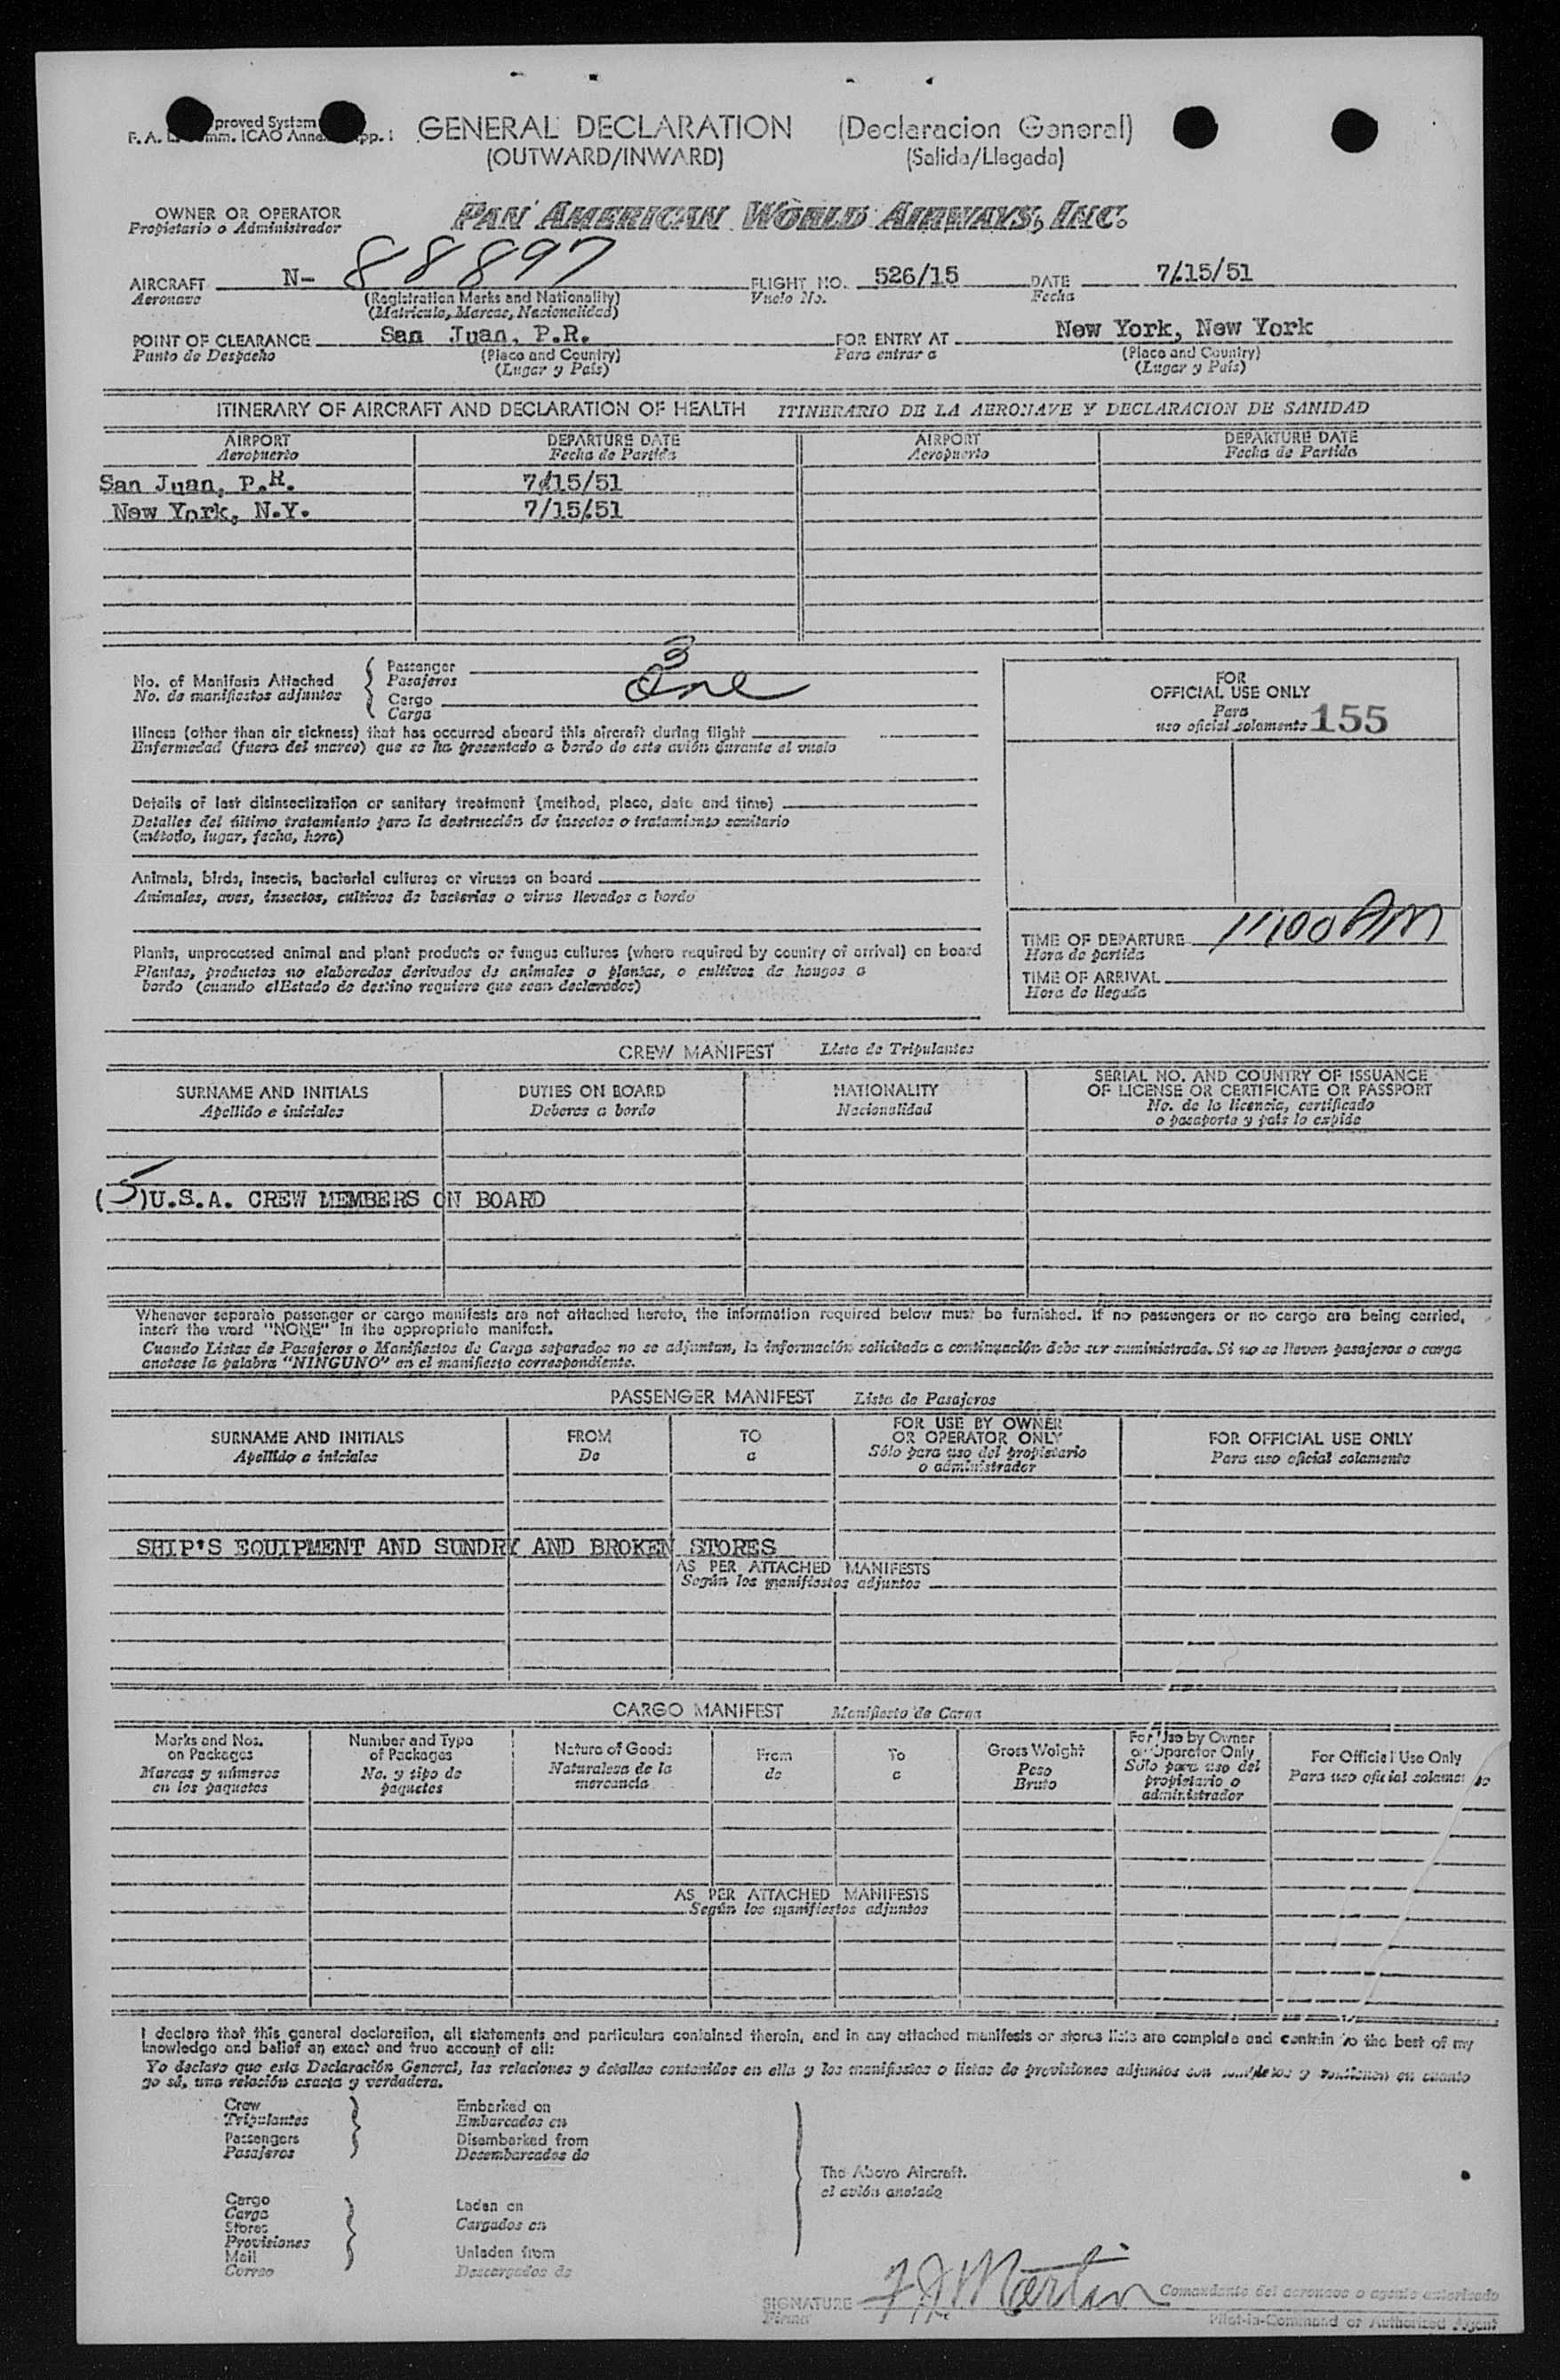 proved System
F. A. L. Comm. ICAO Annex App. 1
GENERAL DECLARATION (Declaracion General)
(OUTWARD/INWARD) (Salida/Llegada)
OWNER OR OPERATOR PAN AMERICAN WORLD AIRWAYS, INC.
Propietario o Administrador
AIRCRAFT N- 88897 FLIGHT NO. 526/15 DATE 7/15/51
Aeronave (Registration Marks and Nationality) Vuelo No. Fecha
(Matricula, Marcas, Nacionalidad)
POINT OF CLEARANCE San Juan, P.R. FOR ENTRY AT New York, New York
Punto de Despacho (Place and Country) Para entrar a (Place and Country)
(Lugar y País) (Lugar y País)
ITINERARY OF AIRCRAFT AND DECLARATION OF HEALTH ITINERARIO DE LA AERONAVE Y DECLARACION DE SANIDAD
AIRPORT DEPARTURE DATE AIRPORT DEPARTURE DATE
Aeropuerto Fecha de Partida Aeropuerto Fecha de Partida
San Juan, P.R. 7/15/51
New York, N.Y. 7/15/51
No. of Manifests Attached Passenger 3
No. de manifiestos adjuntos Pasajeros
Cargo One
Carga
FOR
OFFICIAL USE ONLY
Para
uso oficial solamente 155
Illness (other than air sickness) that has occurred aboard this aircraft during flight
Enfermedad (fuera del mareo) que se ha presentado a bordo de este avión durante el vuelo
Details of last disinsectization or sanitary treatment (method, place, date and time)
Detalles del último tratamiento para la destrucción de insectos o tratamiento sanitario
(método, lugar, fecha, hora)
Animals, birds, insects, bacterial cultures or viruses on board
Animales, aves, insectos, cultivos de bacterias o virus llevados a bordo
Plants, unprocessed animal and plant products or fungus cultures (where required by country of arrival) on board
Plantas, productos no elaborados derivados de animales o plantas, o cultivos de hongos a
bordo (cuando elEstado de destino requiere que sean declarados)
TIME OF DEPARTURE 11:00 AM
Hora de partida
TIME OF ARRIVAL
Hora de llegada
CREW MANIFEST Lista de Tripulantes
SURNAME AND INITIALS DUTIES ON BOARD NATIONALITY SERIAL NO. AND COUNTRY OF ISSUANCE
Apellido e iniciales Deberes a bordo Nacionalidad OF LICENSE OR CERTIFICATE OR PASSPORT
No. de la licencia, certificado
o pasaporte y país lo expide
(5)U.S.A. CREW MEMBERS ON BOARD
Whenever separate passenger or cargo manifests are not attached hereto, the information required below must be furnished. If no passengers or no cargo are being carried,
insert the word "NONE" in the appropriate manifest.
Cuando Listas de Pasajeros o Manifiestos de Carga separados no se adjuntan, la información solicitada a continuación debe ser suministrada. Si no se lleven pasajeros o carga
anotese la palabra "NINGUNO" en el manifiesto correspondiente.
PASSENGER MANIFEST Lista de Pasajeros
SURNAME AND INITIALS FROM TO FOR USE BY OWNER FOR OFFICIAL USE ONLY
Apellido e iniciales De a OR OPERATOR ONLY Para uso oficial solamente
Sólo para uso del propietario
o administrador
SHIP'S EQUIPMENT AND SUNDRY AND BROKEN STORES
AS PER ATTACHED MANIFESTS
Según los manifiestos adjuntos
CARGO MANIFEST Manifiesto de Carga
Marks and Nos. Number and Type Nature of Goods From To Gross Weight For Use by Owner For Official Use Only
on Packages of Packages Naturaleza de la de a Peso or Operator Only Para uso oficial solamente
Marcas y números No. y tipo de mercancía Bruto Sólo para uso del
en los paquetes paquetes propietario o
administrador
AS PER ATTACHED MANIFESTS
Según los manifiestos adjuntos
I declare that this general declaration, all statements and particulars contained therein, and in any attached manifests or stores lists are complete and contain to the best of my
knowledge and belief an exact and true account of all:
Yo declaro que esta Declaración General, las relaciones y detalles contenidos en ella y los manifiestos o listas de provisiones adjuntos son completos y contienen en cuanto
yo sé, una relación exacta y verdadera.
Crew Embarked on
Tripulantes Embarcados en
Passengers Disembarked from
Pasajeros Desembarcados de
The Above Aircraft.
el avión anotado
Cargo Laden on
Carga Cargados en
Stores
Provisiones
Mail Unladen from
Correo Descargados de
SIGNATURE F J Martin Comandante del aeronave o agente autorizado
Firma Pilot-in-Command or Authorized Agent